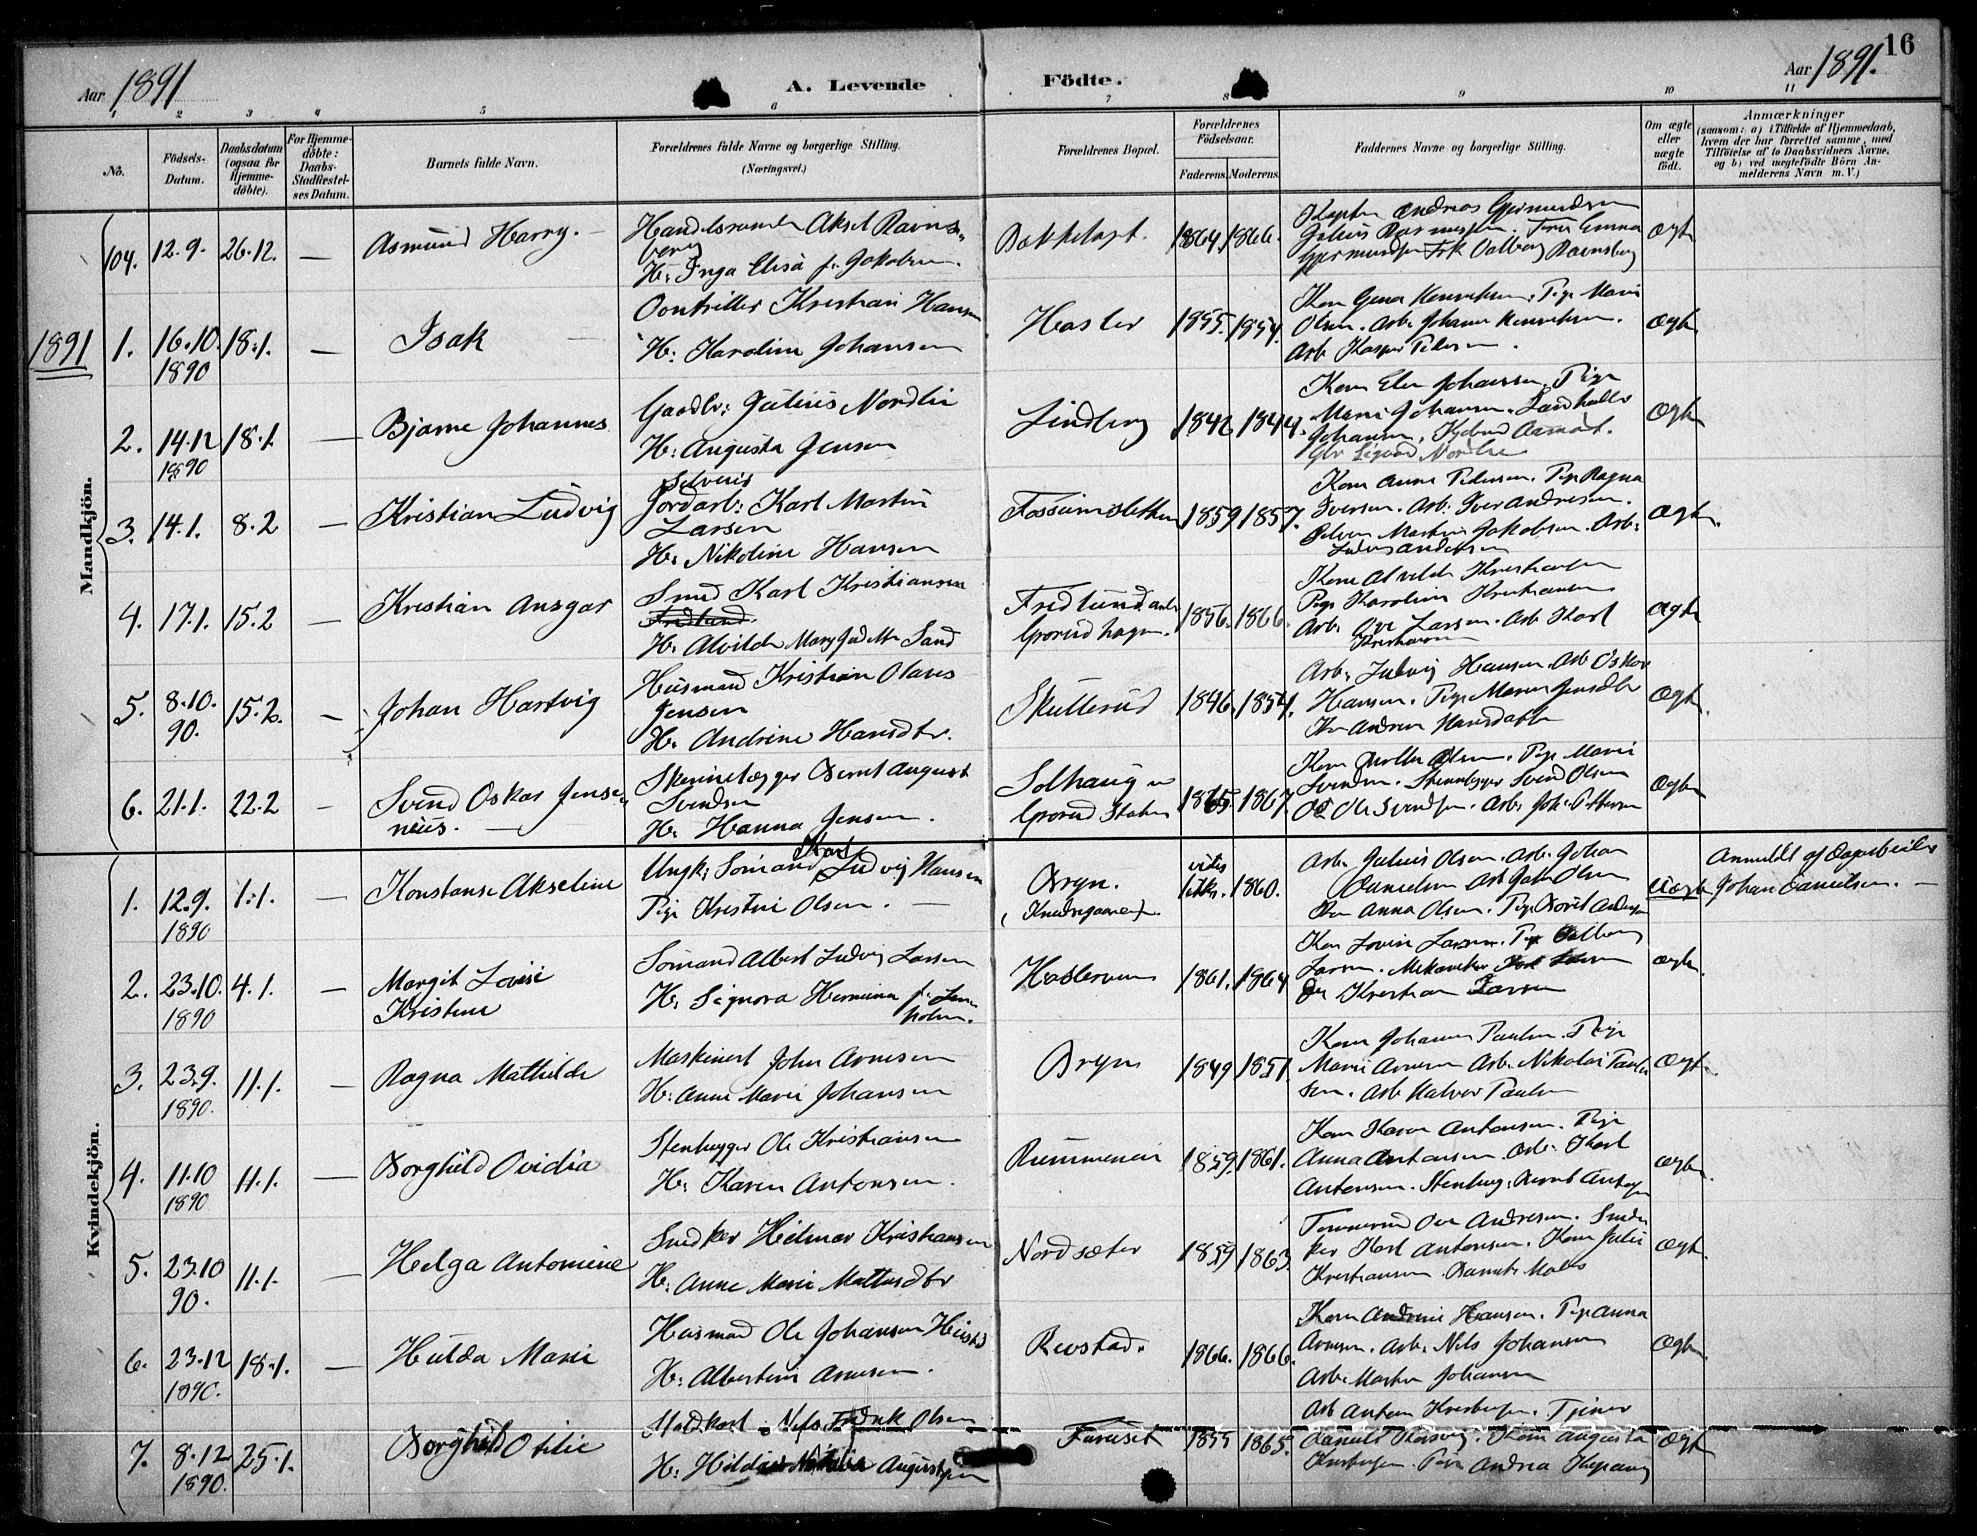 Aar 1891
A. Levende Födte.
Aar 1891. 16
1 2 3 4 5 6 7 8 9 10 11
No.
Födsels-Datum.
Daabsdatum (ogsaa for Hjemmedöbte).
For Hjemmedöbte: Daabs-Stadfæstelses Datum.
Barnets fulde Navn.
Forældrenes fulde Navne og borgerlige Stilling. (Næringsvei.)
Forældrenes Bopæl.
Forældrenes Födselsaar.
Faderens. Moderens.
Faddernes Navne og borgerlige Stilling.
Om ægte eller uægte födt.
Anmærkninger
(saasom: a) i Tilfælde af Hjemmedaab, hvem der har forrettet samme, med Tilföielse af to Daabsvidners Navne, og b) ved uægtefödte Börn Anmelderens Navn m. V.)
Mandkjön.
104. 12.9. 26.12. — Asmund Harry. —
Aksel Ravnsberg
H: Inga Elisa f. Jakobsen.
Bækkelaget. 1864. 1866.
Andreas Gjermundsen
Julius Rasmussen. Emma
Gjermundsen Frk Valborg Ravnsberg
Ægte
1891
1. 16.10. 1890 18.1. — Isak
Kristian Hansen
H: Karoline Johansen
Hasler 1855. 1854.
Olsen. Arb. Johan Henriksen.
Arb Kasper Pedersen.
Ægte
2. 14.12 1890 18.1. — Bjarne Johannes
Gaardbr: Julius Nordlie
H: Augusta Jensen
Lindberg 1842 1844.
Kone Elen Johansen. Pige
Marie Johansen.
Gbr Sigurd Nordlie
Ægte
3. 14.1. 8.2 — Kristian Ludvig
Selveier
Jordarb: Karl Martin
Larsen
H: Nikoline Hansen
Fossumsletten 1859 1857.
Kone Anne Pedersen. Pige Ragna
Iversen. Arb: Iver Andresen.
Selveier Martin Jakobsen. Arb:
Ludvig Andersen
Ægte.
4. 17.1. 15.2 — Kristian Ansgar
Smed Karl Kristiansen
Fredlund.
H: Alvilde Mary Sand
Fredlund
Grorudhagen. 1856. 1866.
Kone Alvilde Kristiansen
Pige Karoline Kristiansen
Arb: Ove Larsen. Arb Karl
Kristiansen
Ægte
5. 8.10. 90. 15.2. — Johan Hartvig
Husmand Kristian Olaus
Jensen
H: Andrine Hansdtr.
Skullerud 1846. 1854.
Arb: Ludvig Hansen. Arb Oskar
Hansen. Pige Maren
Ægte.
6. 21.1. 22.2 — Svend Oskar Jensenius. —
Bernt August
Svendsen
H: Hanna Jensen.
Solhaug
Grorud Station 1865 1867.
Olsen. Pige Marie
Svendsen. Stenhugger Svend Olsen
Ole Svendsen. Arb: Joh. Pettersen
Ægte
Kvindekjön.
1. 12.9. 1890 1.1. — Konstanse Akseline
Ungk: Sömand Karl Ludvig Hansen
Pige Kristine Olsen. —
Bryn. 1860.
Arb: Julius Olsen. Arb: Johan
Danielsen Arb John Olsen
Anna Olsen. Pige Andersen
Uægte
Anmeldt af
Johan Danielsen. —
2. 23.10. 1890 4.1. — Margit Lovise
Kristine
Sömand Albert Ludvig Larsen
H: Signora Hermina f.
1861. 1864
Kone Lovise Larsen. Pige Valborg
Larsen. Mekaniker Karl Larsen
Kristian Larsen
Ægte.
3. 23.9. 1890. 11.1. — Ragna Mathilde
Maskinist John Arnesen
H: Anne Marie Johansen
Bryn 1849 1851.
Kone Johanne Paulsen. Pige
Marie Arnesen Arb: Nikolai Paulsen. Arb Halvor Paulsen
Ægte.
4. 11.10 1890 11.1. — Borghild Ovidia
Stenhugger Ole Kristiansen
H: Karen Antonsen.
1859. 1861.
Kone Karen Antonsen. Pige
Anna Antonsen. Arb: Karl
Antonsen. Stenhug: Bernt Antonsen
Ægte.
5. 23.10 90. 11.1. — Helga Antonine
Snedker Hilmar Kristiansen
H: Anne Marie
Nordsæter 1859 1863.
Tömmermd Ove Andresen. Snedker Karl Antonsen. Kone Julie
Kristiansen.
Ægte.
6. 23.12 1890. 18.1. — Hulda Marie
Husmand Ole Johansen
H: Albertine Arnesen.
Revstad. 1866. 1866.
Kone Andrine Hansen. Pige Anna
Arnesen. Arb: Nils Johansen
Arb: Martin Johansen
Ægte.
7. 8.12 1890. 25.1. Borghild Otilie
Staldkarl Nils Fredrik Olsen
H: Hilda
Furuset 1855 1865.
Arb Anton Tjener
Kone Augusta
Pige Andrea
Ægte